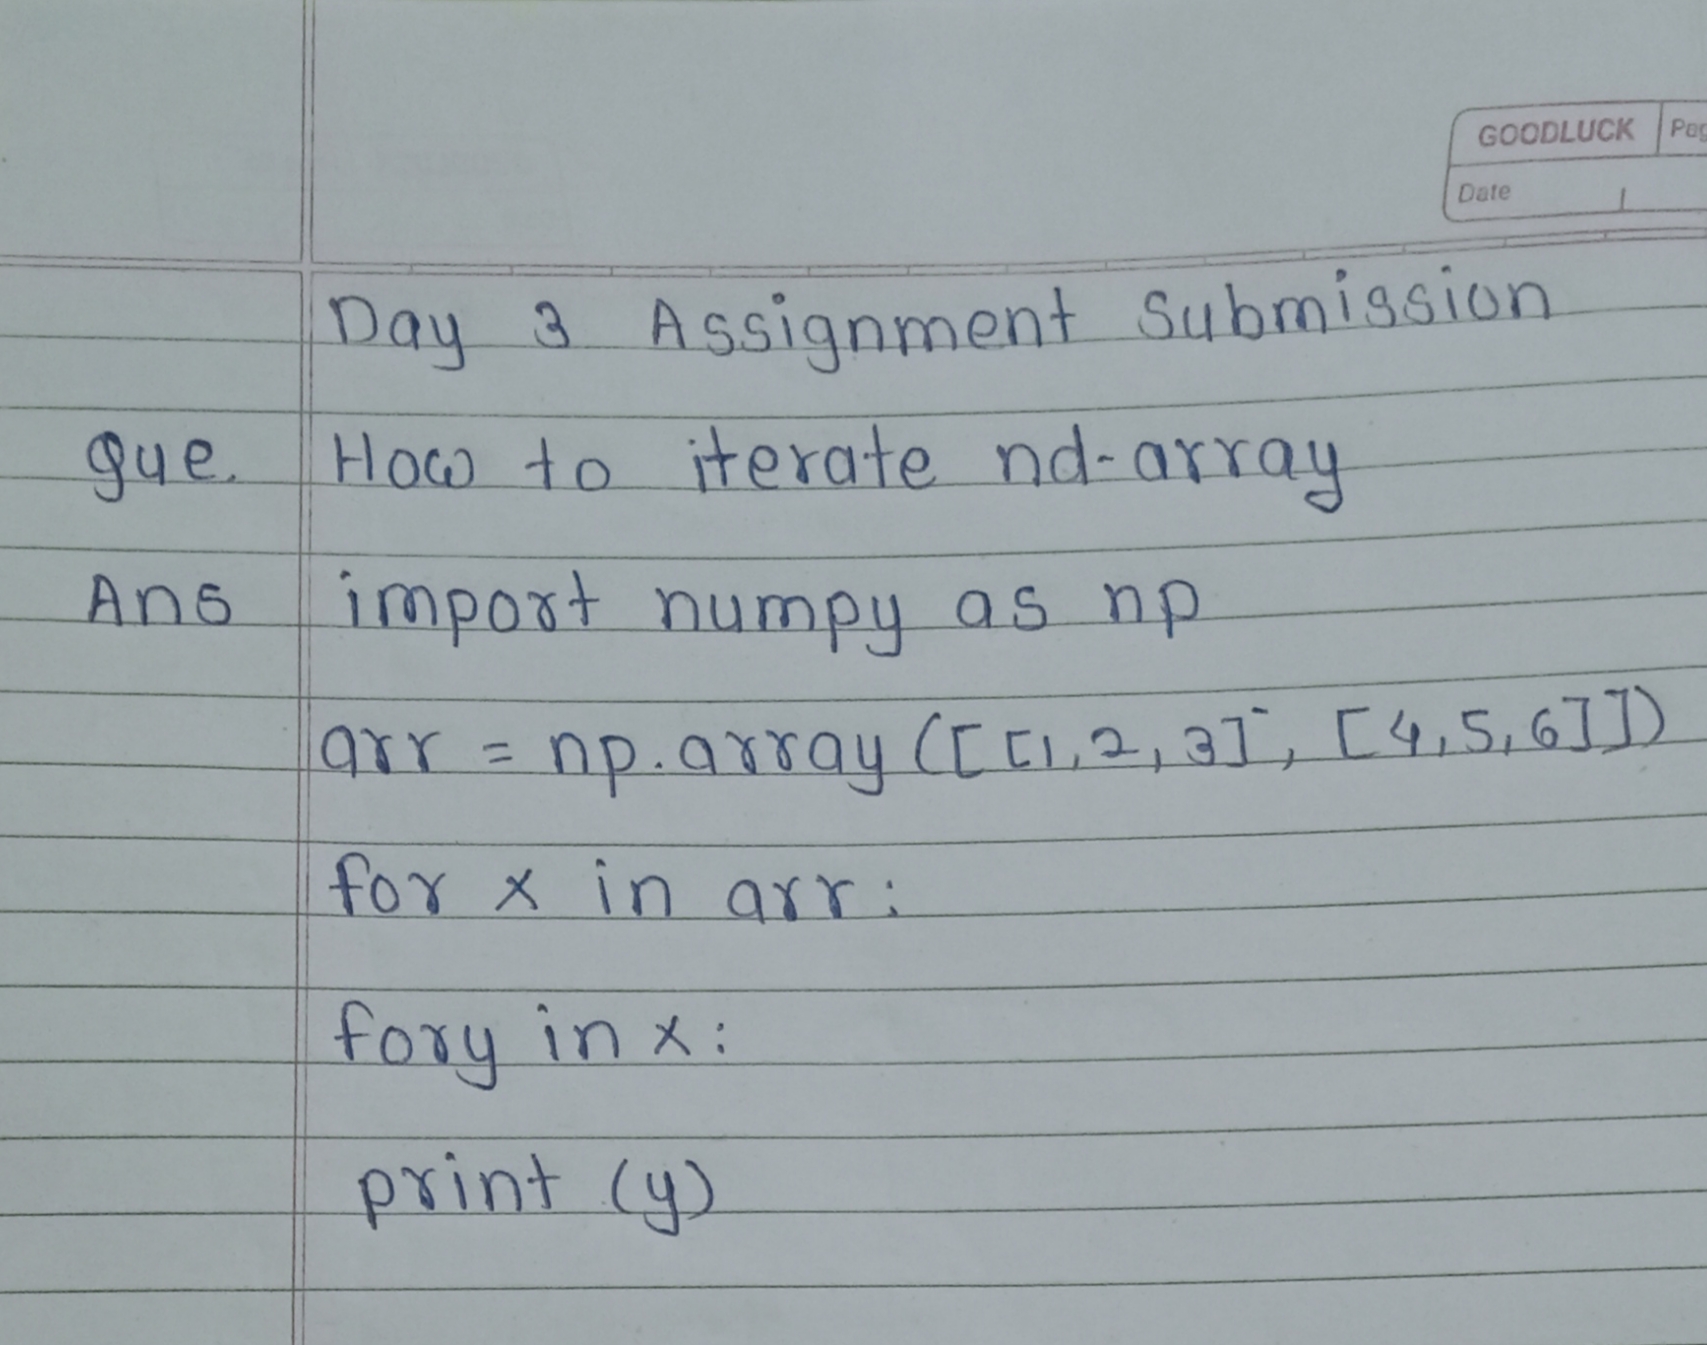 GOODLUCK
Date
Day 3 Assignment Submission
que. How to iterate nd-array
Ans import numpy as np
arr = np.array([[1,2,3], [4,5,6]])
for x in arr:
fory in x:
print (y)